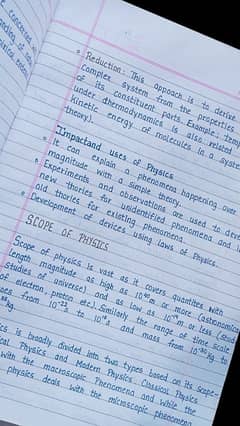 concerned wi
nding of
• Reduction: This approach is to derive
complex system from the properties
of its constituent parts. Example: Temp
under thermodynamics is also related
kinetic energy of molecules in a system
theory).
Impactand uses of Physics
• It can explain a phenomena happening over
magnitude with a simple theory.
• Experiments and observations are used to deve
new thories for unidentified phenomena and
old thories for existing phenomena.
• Development of devices using laws of Physics.
SCOPE OF PHYSICS
Scope of physics is vast as it covers quantities with
length magnitude as high as 10⁴⁰m or more (astronomica
studies of universe) and as low as 10⁻¹⁴m or less (study
of electron, proton etc). Similarly the range of time scale
oes from 10⁻²²s to 10¹⁸s and mass from 10⁻³⁰kg to
kg.
ics is broadly divided into two types based on its scope-
cal Physics and Modern Physics. Classical Physics
with the macroscopic Phenomena and whilt the
physics deals with the microscopic phenomen